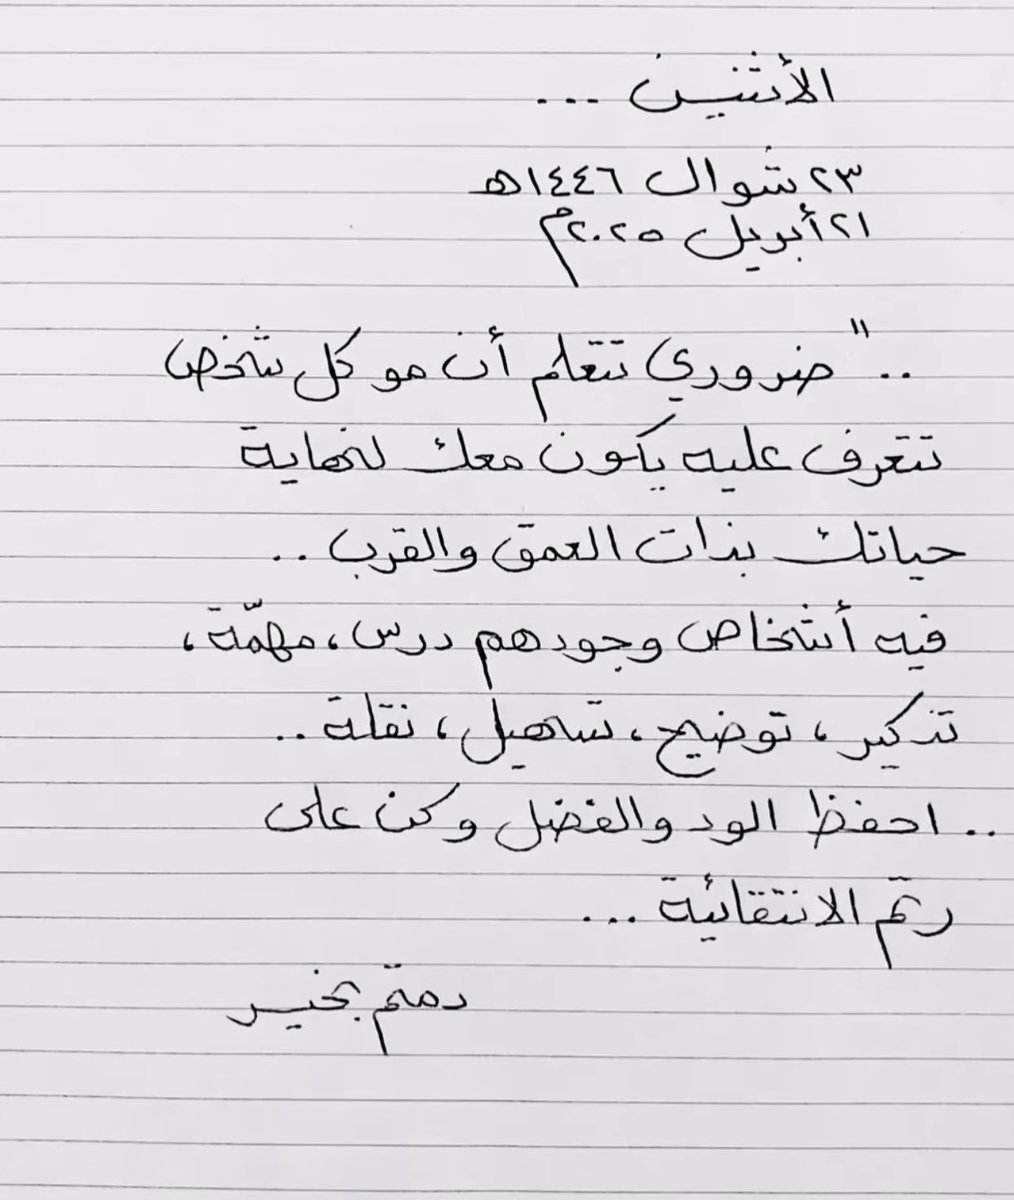 الأثنين ...
٢٣ شوال ١٤٤٦هـ
٢١ أبريل ٢٠٢٥م
.. " ضروري تتعلم أن مو كل شخص
تتعرف عليه يكون معك لنهاية
حياتك بذات العمق والقرب ..
فيه أشخاص وجودهم درس، مهمّة،
تذكير، توضيح، تسهيل، نقلة ..
.. احفظ الود والفضل وكن على
رتم الانتقائية ...
دمتم بخير